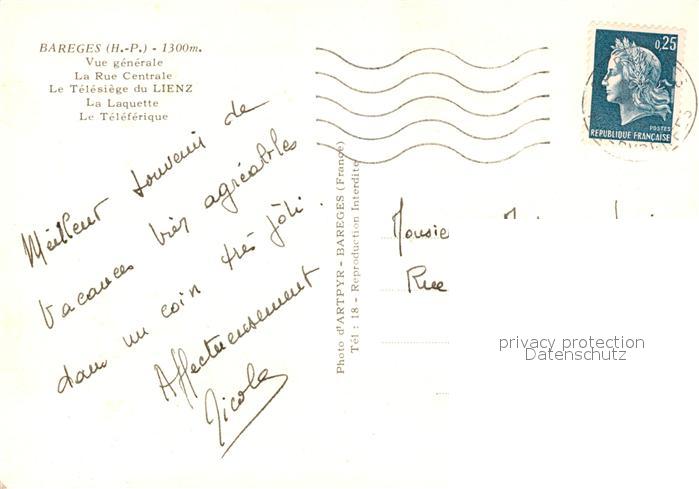 BAREGES (H.-P.) - 1300m.
Vue générale
La Rue Centrale
Le Télésiège du LIENZ
La Laquette
Le Téléférique
Meilleur souvenir de
vacances bien agréables
dans un coin très joli.
Affectueusement
Nicole
Photo d'ARTPYR - BAREGES (France)
Tél : 18 - Reproduction Interdite
0,25
POSTES
REPUBLIQUE FRANÇAISE
Monsie
Rue
privacy protection
Datenschutz